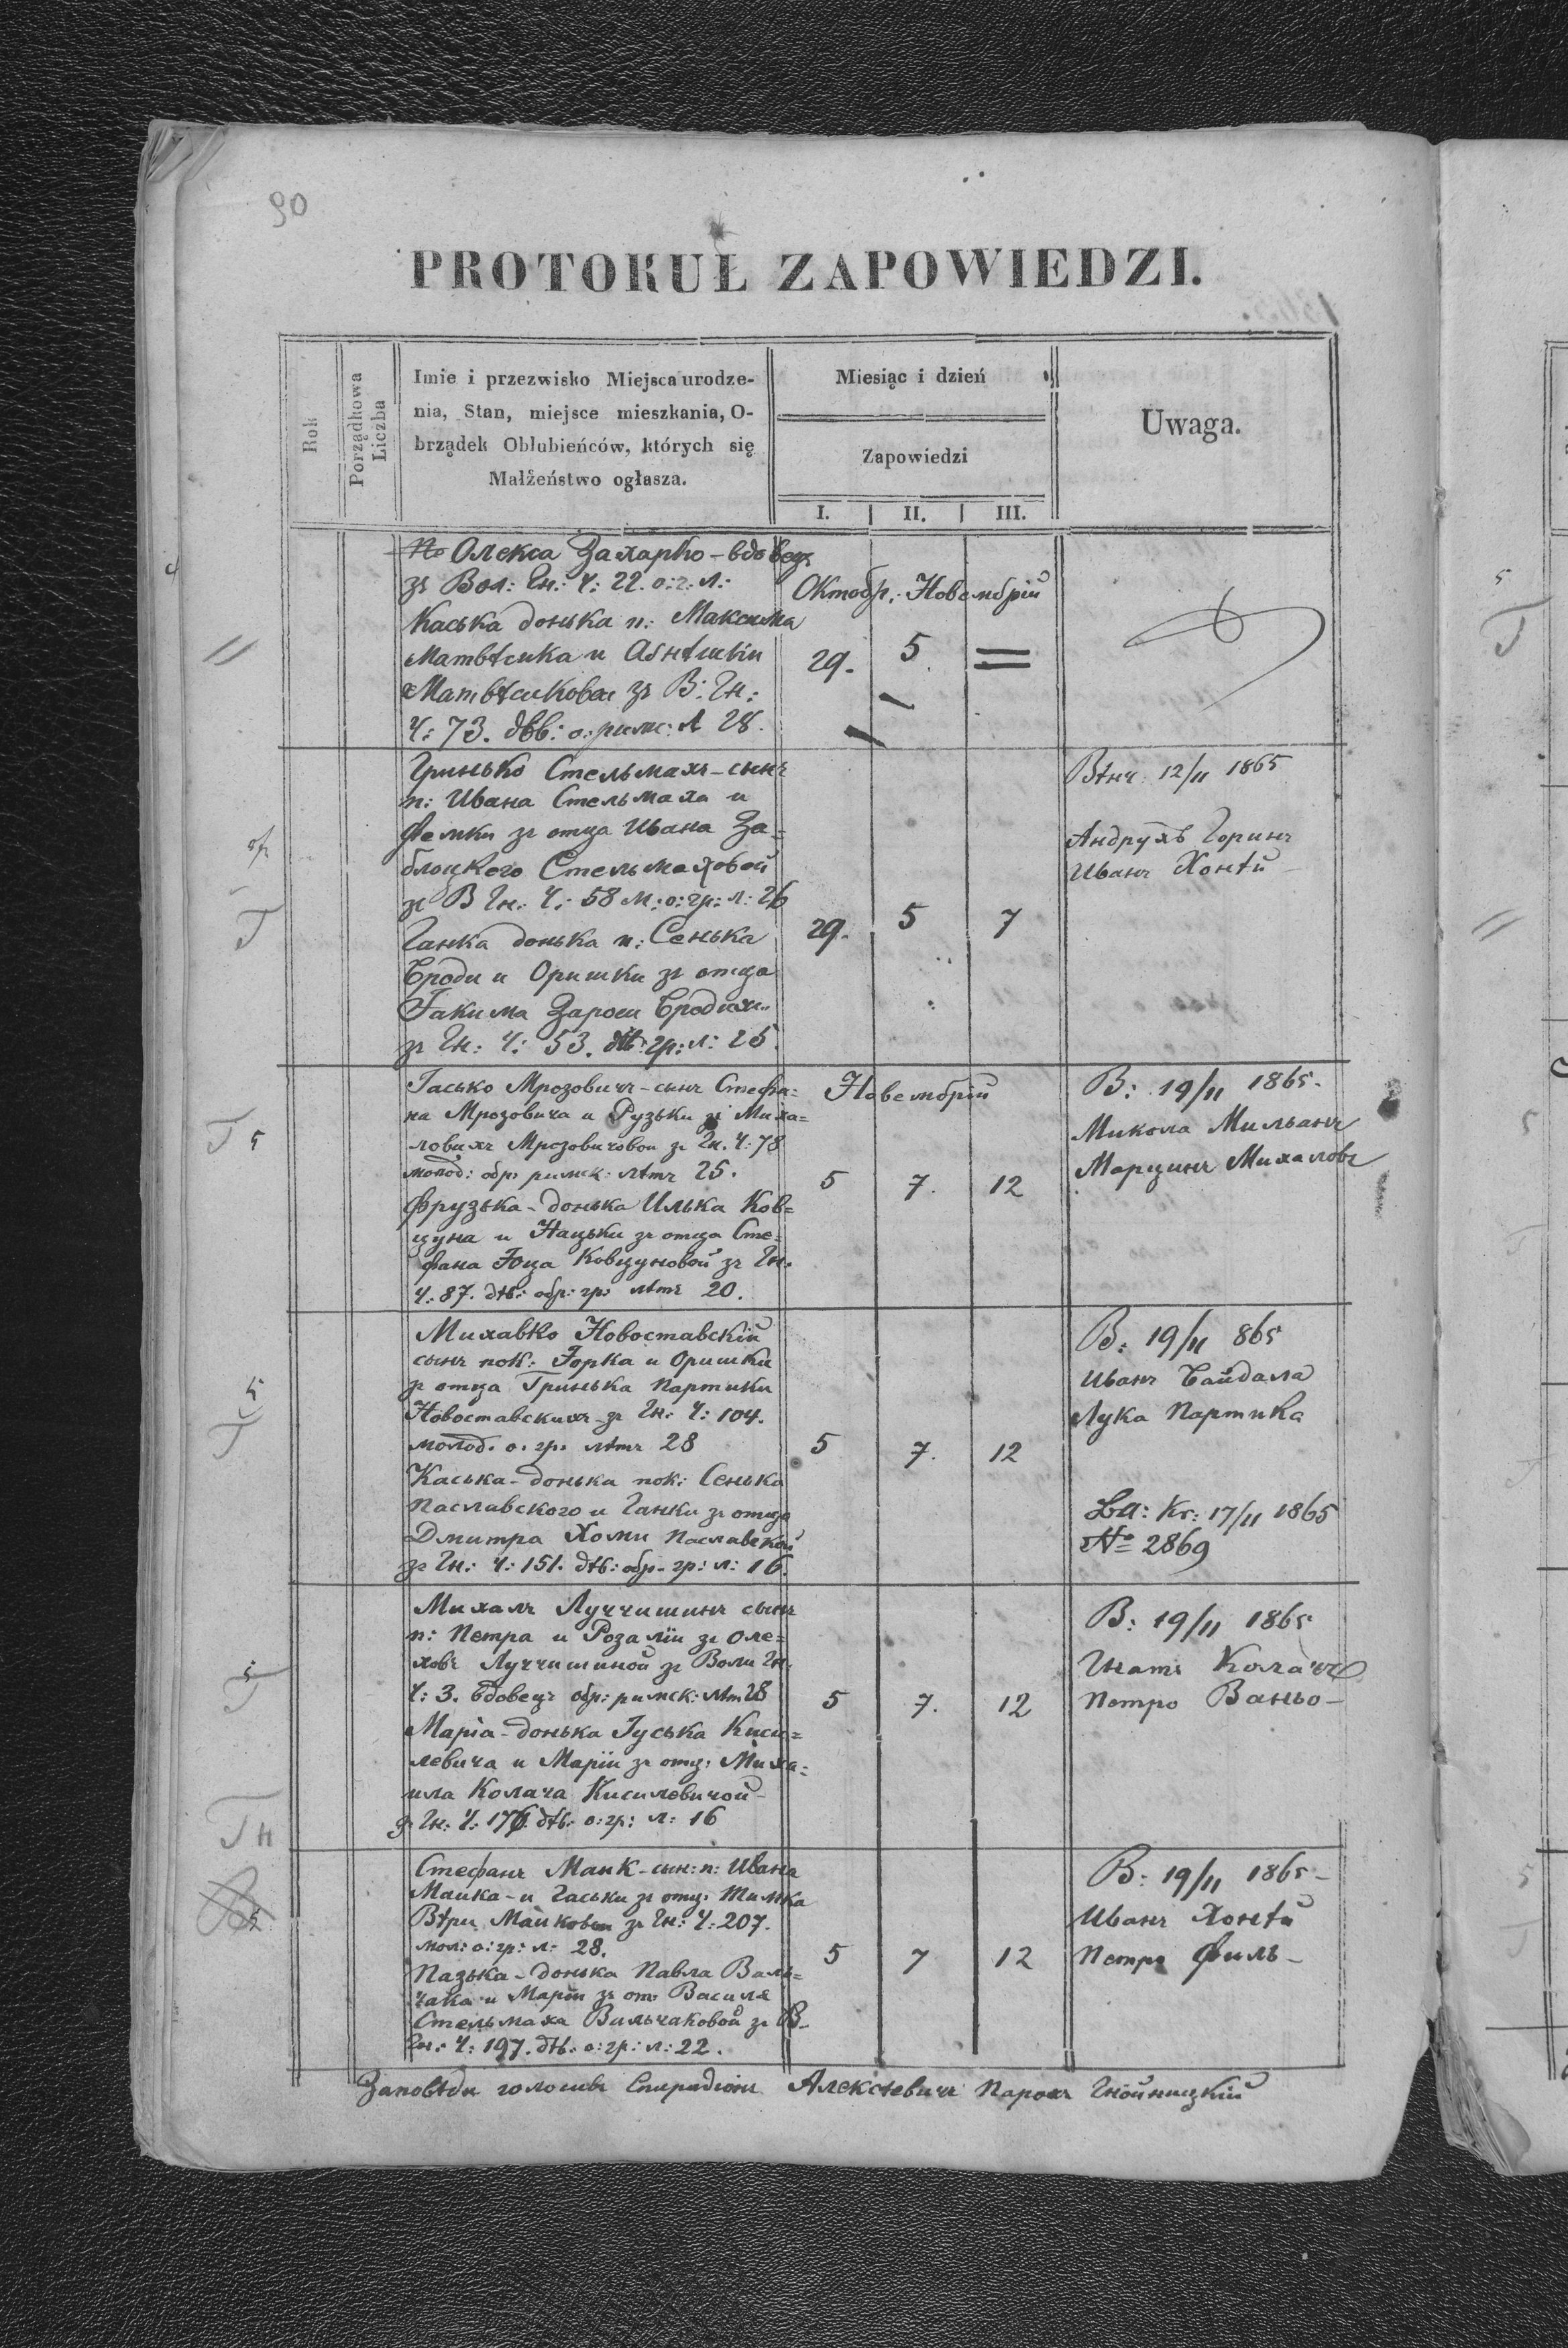 90
PROTOKUŁ ZAPOWIEDZI.
Rok
Porządkowa Liczba
Imie i przezwisko Miejsca urodze-
nia, Stan, miejsce mieszkania, O-
brządek Oblubieńców, których się
Małżeństwo ogłasza.
Miesiąc i dzień
Zapowiedzi
I. II. III.
Uwaga.
Олекса Захарко - вдовець
зъ Вол: Гн: Ч: 22. о: г: л:
Каська донька п: Максима
Матвѣика и
Матвѣиковои зъ В: Гн:
Ч: 73. дѣв: о: римс: л 28.
Октобр: Новембрій
29. 5. =
Гринько Стельмахъ - сынъ
п: Ивана Стельмаха и
Фемки зъ отца Ивана За=
блоцкего Стельмаховой
зъ В Гн: Ч: 58 м: о: гр: л: 26
Ганка донька п: Сенька
Броди и Оришки зъ отца
Якима Зароси Бродихъ
зъ Гн: Ч: 53. дѣв: гр: л: 25.
29. 5 7
Вѣнч 12/11 1865
Андрухъ Горинъ
Иванъ Хонѣй
Гасько Мрозовичъ - сынъ Стефа=
на Мрозовича и Рузьки зъ Миха=
ловихъ Мрозовичовои зъ Гн. Ч: 78
молод: обр: римск: лѣтъ 25.
Фрузька - донька Илька Ков=
цуна и Нацьки зъ отца Сте=
фана Юца Ковцуновой зъ Гн.
Ч: 87. дѣв: обр: гр: лѣтъ 20.
Новембрій
5 7. 12
В: 19/11 1865.
Микола Мильанъ
Марцинъ Михаловъ
Михавко Новоставскій
сынъ пок: Юрка и Оришки
зъ отца Гринька Партики
Новоставскихъ зъ Гн: Ч: 104.
молод. о. гр. лѣтъ 28
Каська - донька пок: Сенька
Паславского и Ганки зъ отца
Дмитра Хоми Паславской
зъ Гн: Ч: 151. дѣв: обр. гр: л: 16.
5 7. 12
В: 19/11 865
Иванъ Байдала
Лука Партика
Kr: 17/11 1865
№ 2869
Михалъ Луччишинъ сынъ
п: Петра и Розаліи зъ Оле=
ховъ Луччишиной зъ Воли Гн.
Ч: 3. вдовець обр: римск: лѣт 28
Маріа - донька Гуська Киси=
левича и Маріи зъ отц: Миха=
ила Колача Кисилевичой -
зъ Гн: Ч: 176. дѣв: о: гр: л: 16
5 7. 12
В: 19/11 1865
Игнатъ Колачъ
Петро Ваньо -
Стефанъ Маик - сын: п: Ивана
Маика - и Гаськи зъ отц: Тимка
Вѣтри Маиковои зъ Гн: Ч: 207.
мол: о: гр: л: 28.
Пазька - донька Павла Виль=
чака и Маріи зъ от: Василя
Стельмаха Вильчаковой зъ В.
Гн: Ч: 197. дѣв: о: гр: л: 22.
5 7 12
В: 19/11 1865 -
Иванъ Хонѣй
Петро Филь -
Заповѣди голосивъ Спиридіонъ Алексѣевичъ Парохъ Гнойницкій